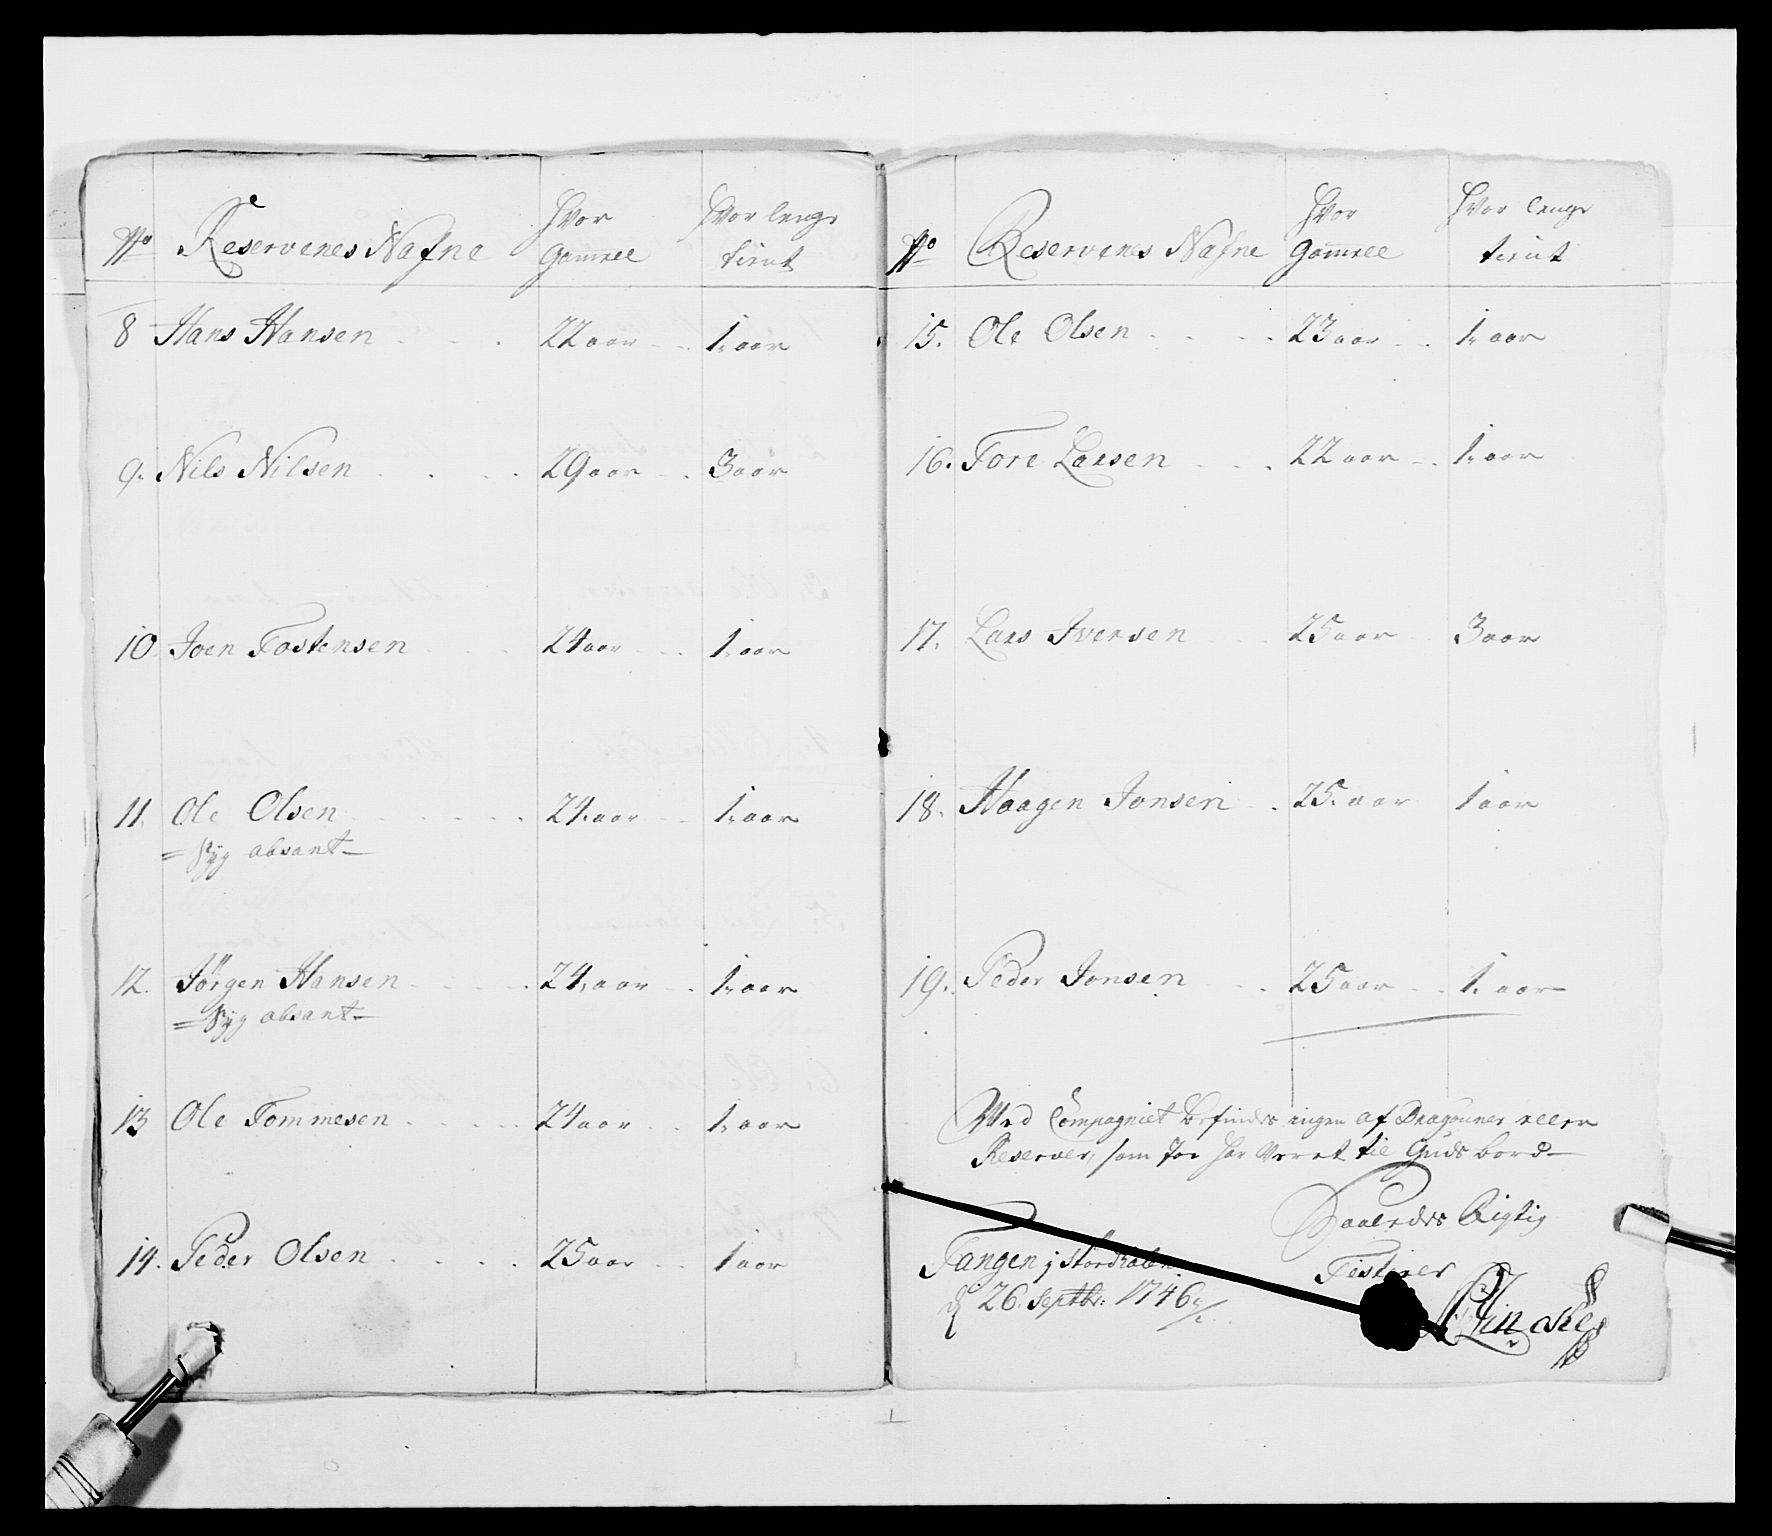 No Reservenes Nafne Hvor Gammel Hvor lenge tient
8 Hans Hansen 22 aar 1. aar
9. Nils Nilsen 29 aar 3 aar
10 Joen Tostensen 24 aar 1. aar
11. Ole Olsen 24. aar 1. aar
= Syg absant
12. Jörgen Hansen 24. aar 1. aar
= Syg absant
13 Ole Tommesen 24 aar 1. aar
14. Peder Olsen 25 aar 1 aar
No Reservenes Nafne Hvor Gammel Hvor lenge tient
15. Ole Olsen 23 aar 1. aar
16. Tore Larsen 22 aar 1. aar
17. Lars Iversen 25 aar 3 aar
18. Haagen Jonsen 25. aar 1 aar
19. Peder Jonsen 25 aar 1. aar
Ved Compagniet befindes ingen af Dragouner eller
Reserver, som Joe har veret til Guds bord
Saaledes Rigtig
Tangen j
Testerer
d 26. Septbr: 1746